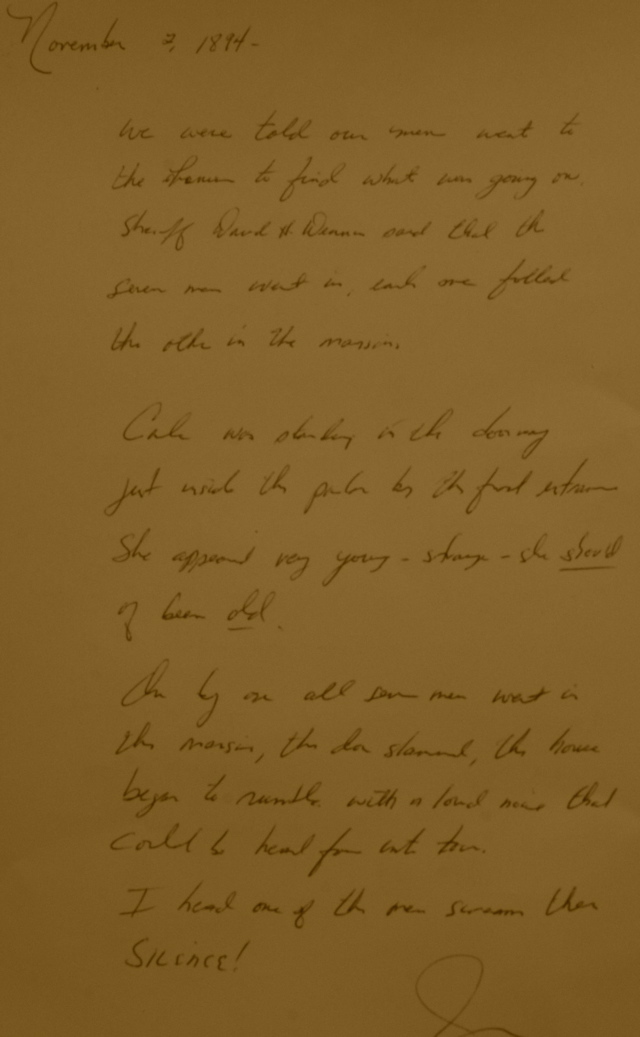 November 7, 1894-
we were told our men went to
the to find what was going on.
Sheriff David H. said that the
seven men went in, each one
the other in the mansion.
was standing in the doorway
just inside the parlor by the front entrance
She appeared very young - strange - she should
of been old.
One by one all seven men went in
the mansion, the door slammed, the house
began to rumble with a loud noise that
could be heard from town.
I heard one of the men scream then
SILENCE!